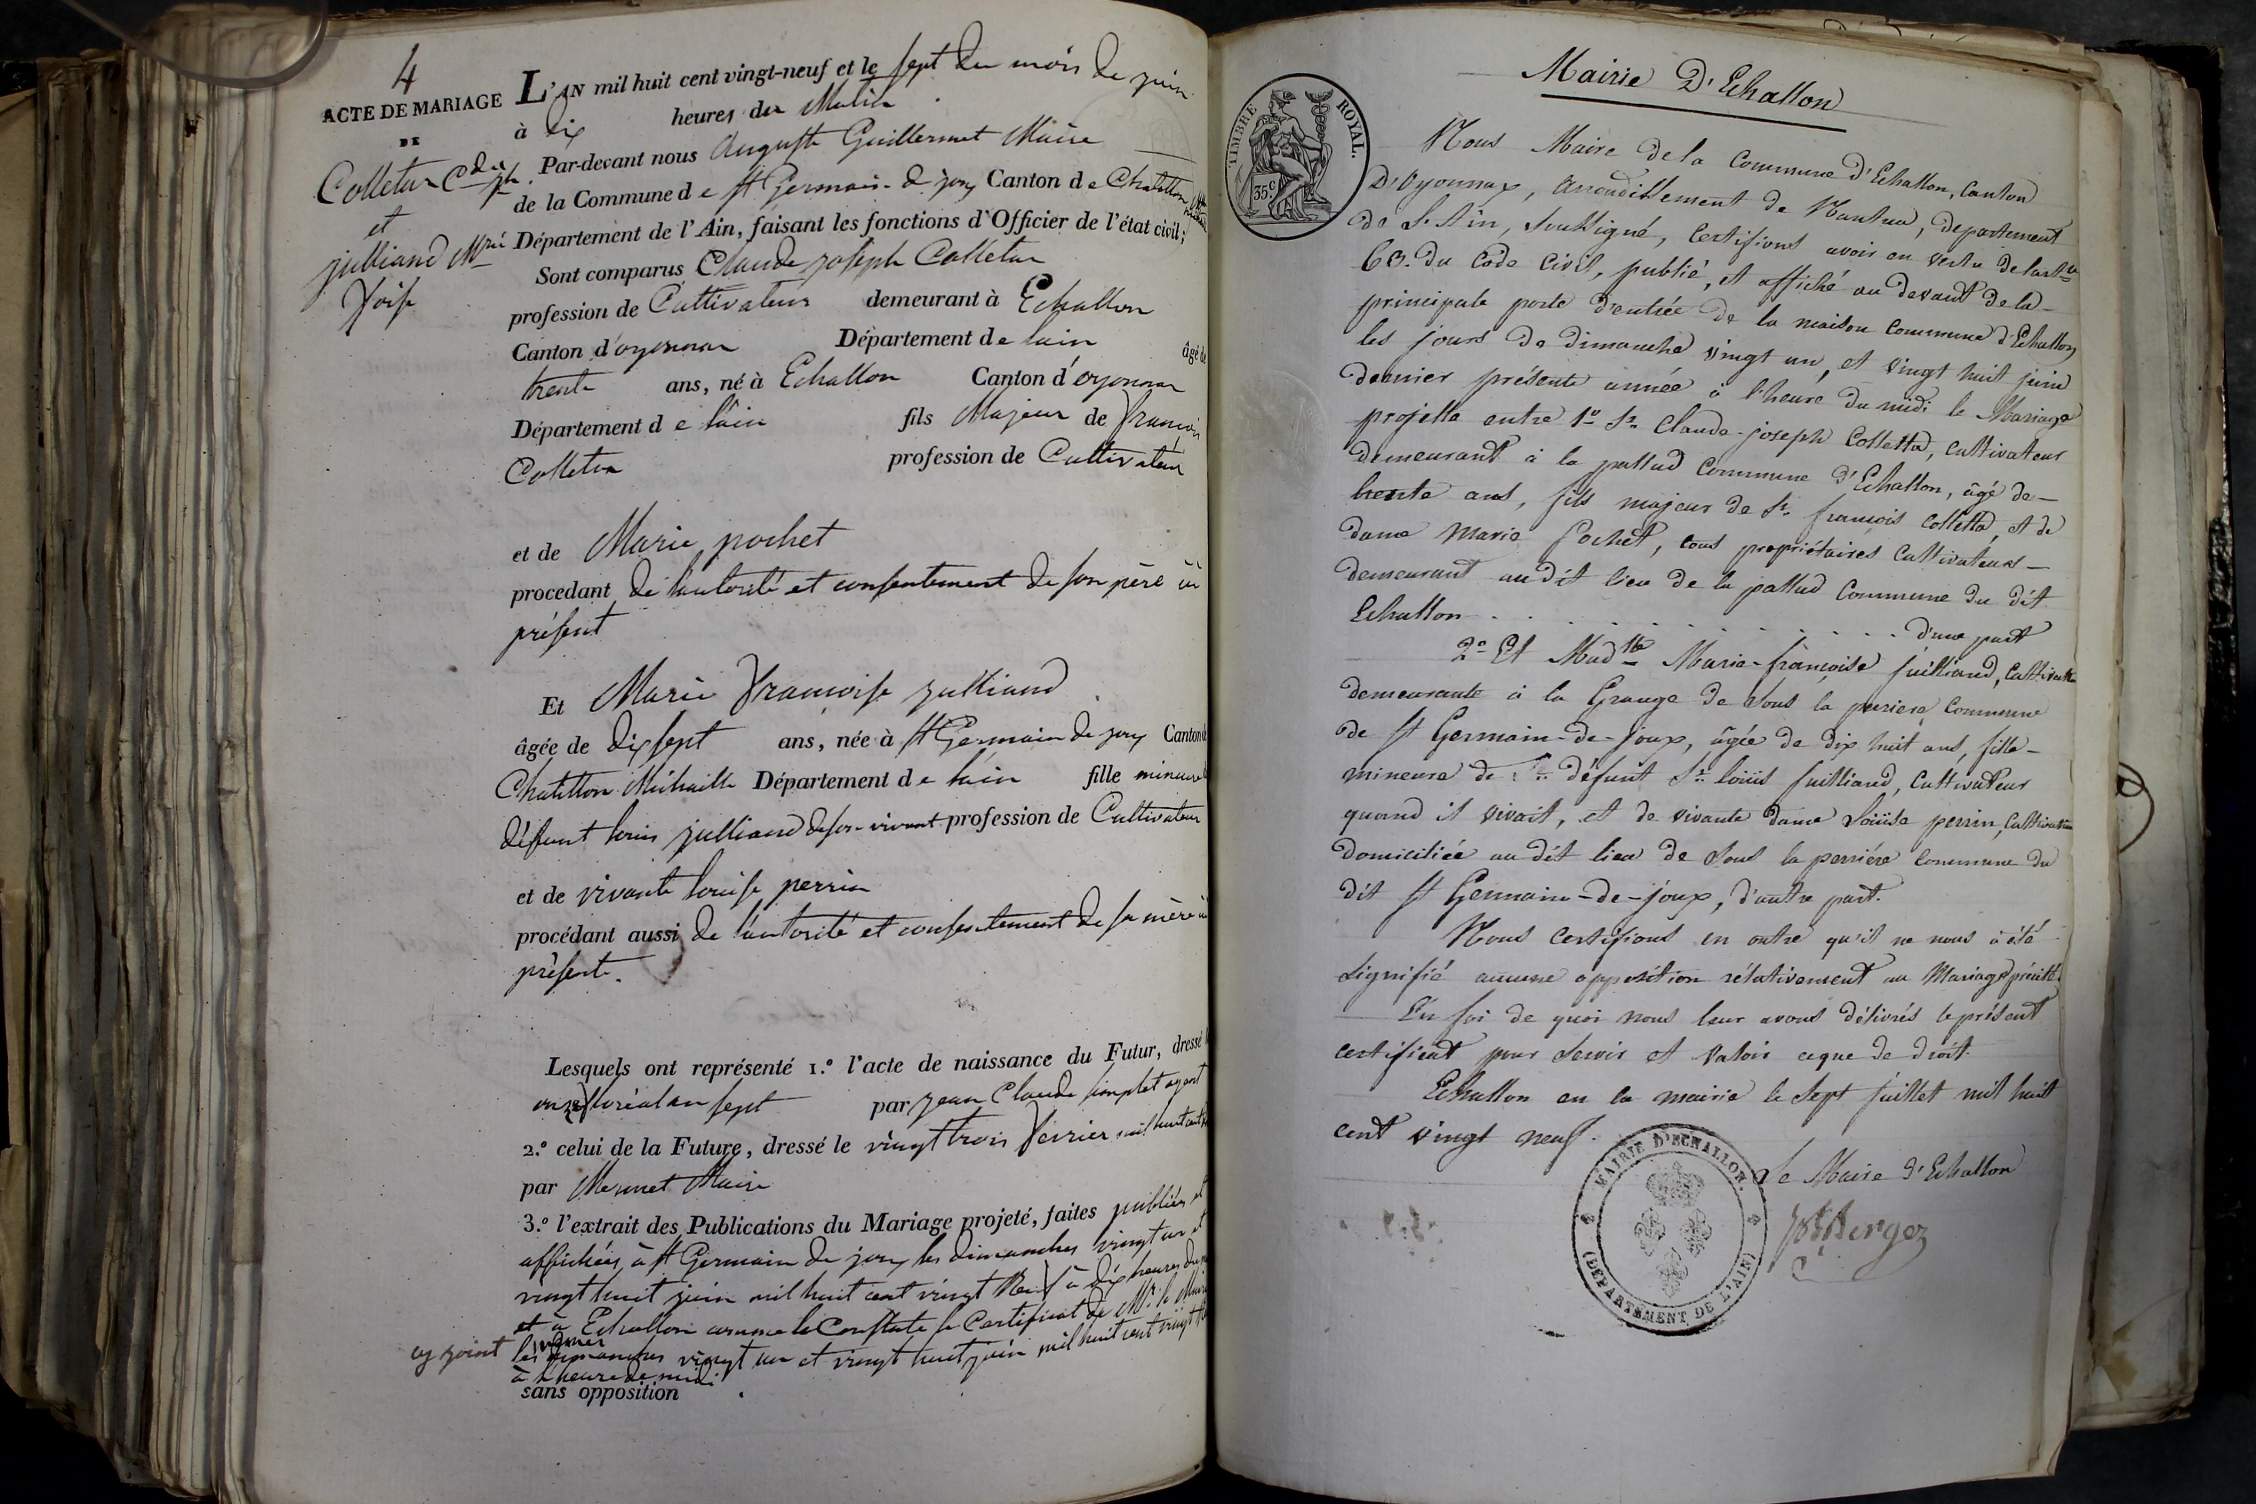 4
ACTE DE MARIAGE
DE
Colletta Cde jph
et
julliand Mrie
foise
L'AN mil huit cent vingt-neuf et le sept du mois de juin
à dix heures du Matin
Par-devant nous auguste Guillermet Maire
de la Commune de st Germain-de-joux Canton de Chatillon
Département de l'Ain, faisant les fonctions d'Officier de l'état civil;
Sont comparus Claude joseph Colletta
profession de Cultivateur demeurant à Echallon
Canton d'oyonnax Département de lain âgé de
trente ans, né à Echallon Canton d'oyonnax
Département de lain fils Majeur de françois
Colletta profession de Cultivateur
et de Marie pochet
procedant de l'autorité et consentement de son père ici
présent
Et Marie françoise julliand
âgée de dix sept ans, née à st Germain de joux Canton de
Chatillon Michaille Département de lain fille mineure
défunt louis julliand de son vivant profession de Cultivateur
et de vivante louise perrin
procédant aussi de l'autorité et consentement de sa mère ici
présente.
Lesquels ont représenté 1.º l'acte de naissance du Futur, dressé le
onze floréal an sept par jean Claude simplet agent
2.º celui de la Future, dressé le vingt trois fevrier mil huit cent
par Mermet Maire
3.º l'extrait des Publications du Mariage projeté, faites publiées et
affichées à st Germain de joux les dimanches vingt un et
vingt huit juin mil huit cent vingt Neuf à dix heures du
et à Echallon comme le Constate le Certificat de Mr le Maire
cy joint les dimanches vingt un et vingt huit juin mil huit cent vingt
à l'heure de midi
sans opposition
Mairie D'Echallon
TIMBRE ROYAL.
35.c
Nous Maire de la Commune d'Echallon, Canton
D'Oyonnax, arrondissement de Nantua, departement
de L'Ain, soussigné, certifions avoir en vertu de lart.le
63. du Code Civil, publié, et affiché au devant de la
principale porte d'entrée de la maison Commune d'Echallon,
les jours de dimanche vingt un, et vingt huit juin
dernier présente année à l'heure du midi le Mariage
projetté entre 1º Sr. Claude-joseph Colletta, cultivateur
demeurant à la pallud Commune d'Echallon, âgé de
trente ans, fils majeur de Sr. françois Colletta, et de
dame Marie Pochet, tous propriétaires Cultivateurs
demeurant audit lieu de la pallud Commune du dit
Echallon . . . . . . . . . . . . . d'une part
2º Et Madlle Marie-françoise Juilliand, Cultivatrice
demeurante à la Grange de Sous la periere, Commune
de St Germain-de-Joux, âgée de dix huit ans, fille
mineure de défunt Sr. loüis Juilliand, Cultivateur
quand il vivait, et de vivante dame Loüise perrin, Cultivatrice
domiciliée au dit lieu de Sous la perriére Commune du
dit St Germain-de-joux, d'autre part.
Nous Certifions en outre qu'il ne nous à été
signifié aucune opposition rélativement au Mariage précité.
En foi de quoi nous leur avons délivrés le présent
certificat pour servir et valoir ce que de droit.
Echallon en la mairie le sept juillet mil huit
cent vingt neuf.
Le Maire d'Echallon
MAIRIE D'ECHALLON.
(DÉPARTEMENT DE L'AIN)